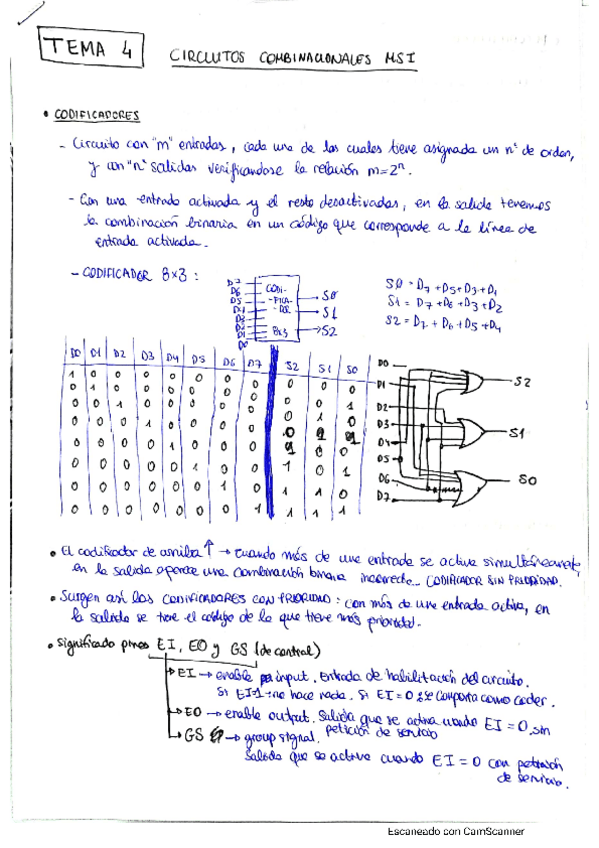 TEMA 4
CIRCUITOS COMBINACIONALES MSI
• CODIFICADORES
- Circuito con "m" entradas, cada una de las cuales tiene asignada un nº de orden,
y con "n" salidas verificandose la relación m=2ⁿ.
- Con una entrada activada y el resto desactivadas, en la salida tenemos
la combinación binaria en un código que corresponde a la línea de
entrada activada.
- CODIFICADOR 8x3:
D7
D6
D5
D4
D3
D2
D1
D0
CODI-
-FICA-
-DOR
8x3
S0
S1
S2
S0 = D7 + D5 + D3 + D1
S1 = D7 + D6 + D3 + D2
S2 = D7 + D6 + D5 + D4
D0 D1 D2 D3 D4 D5 D6 D7 S2 S1 S0
1 0 0 0 0 0 0 0 0 0 0
0 1 0 0 0 0 0 0 0 0 1
0 0 1 0 0 0 0 0 0 1 0
0 0 0 1 0 0 0 0 0 1 1
0 0 0 0 1 0 0 0 1 0 0
0 0 0 0 0 1 0 0 1 0 1
0 0 0 0 0 0 1 0 1 1 0
0 0 0 0 0 0 0 1 1 1 1
D0
D1
D2
D3
D4
D5
D6
D7
S2
S1
S0
• El codificador de arriba ↑ → cuando más de une entrada se active simultáneamente,
en la salida aparece una combinación binaria incorrecta. CODIFICADOR SIN PRIORIDAD.
• Surgen así los CODIFICADORES CON PRIORIDAD: con más de une entrada activa, en
la salida se tiene el código de la que tiene más prioridad.
• Significado pines EI, EO y GS (de control)
EI → enable input. Entrada de habilitación del circuito.
Si EI=1 → no hace nada. Si EI=0 se comporta como coder.
EO → enable output. Salida que se activa cuando EI=0, sin
petición de servicio
GS → group signal.
Salida que se active cuando EI=0 con petición
de servicio.
Escaneado con CamScanner